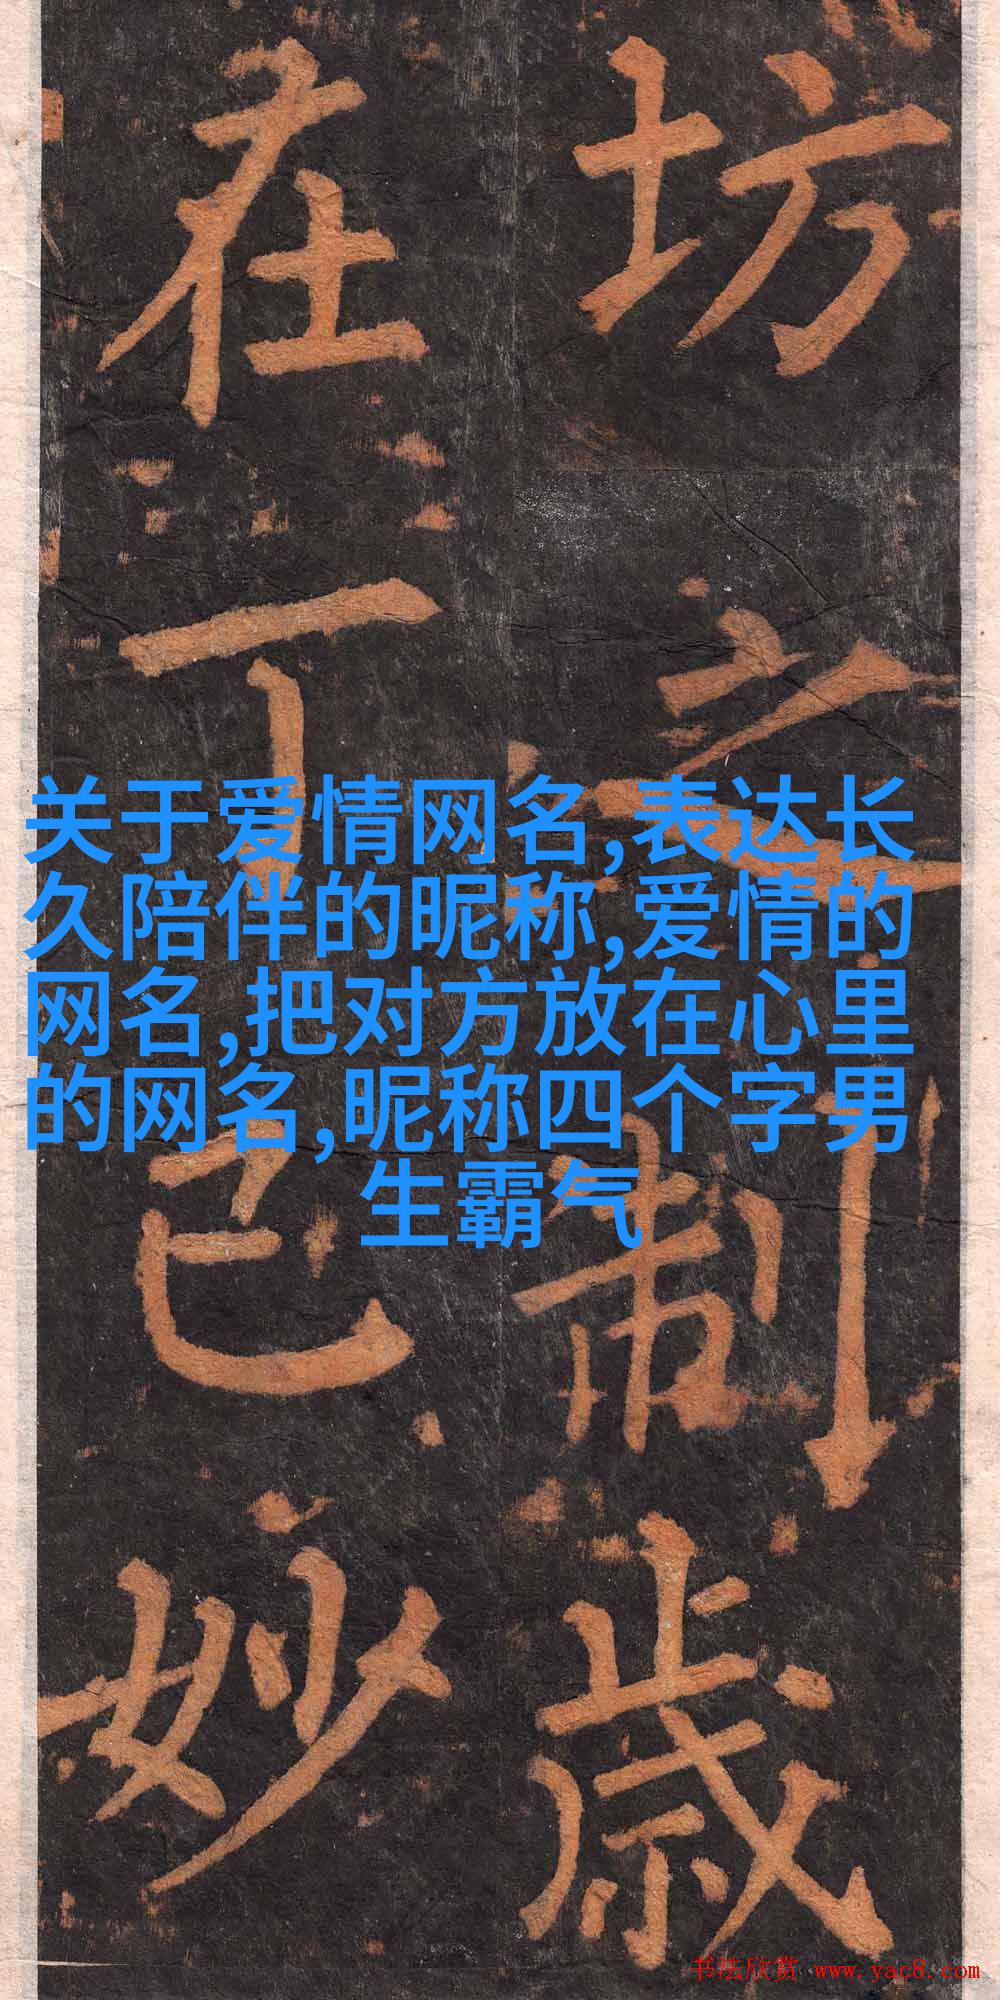 坊之制
歲在丁巳妙
关于爱情网名,表达长
久陪伴的昵称,爱情的
网名,把对方放在心里
的网名,昵称四个字男
生霸气
书法欣赏 www.yac8.com